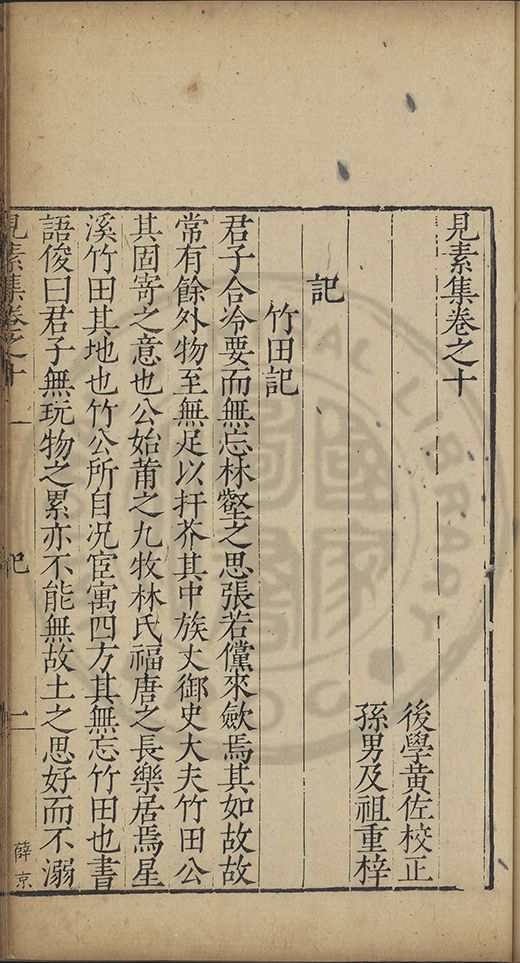 見素集卷之十
後學黃佐校正
孫男及祖重梓
記
竹田記
君子合冷要而無忘林壑之思張若儻來歛焉其如故故
常有餘外物至無足以扞芥其中族丈御史大夫竹田公
其固寄之意也公始莆之九牧林氏福唐之長樂居焉星
溪竹田其地也竹公所自况宦寓四方其無忘竹田也書
語俊曰君子無玩物之累亦不能無故土之思好而不溺
見素集卷之十 一 記 二
薛京